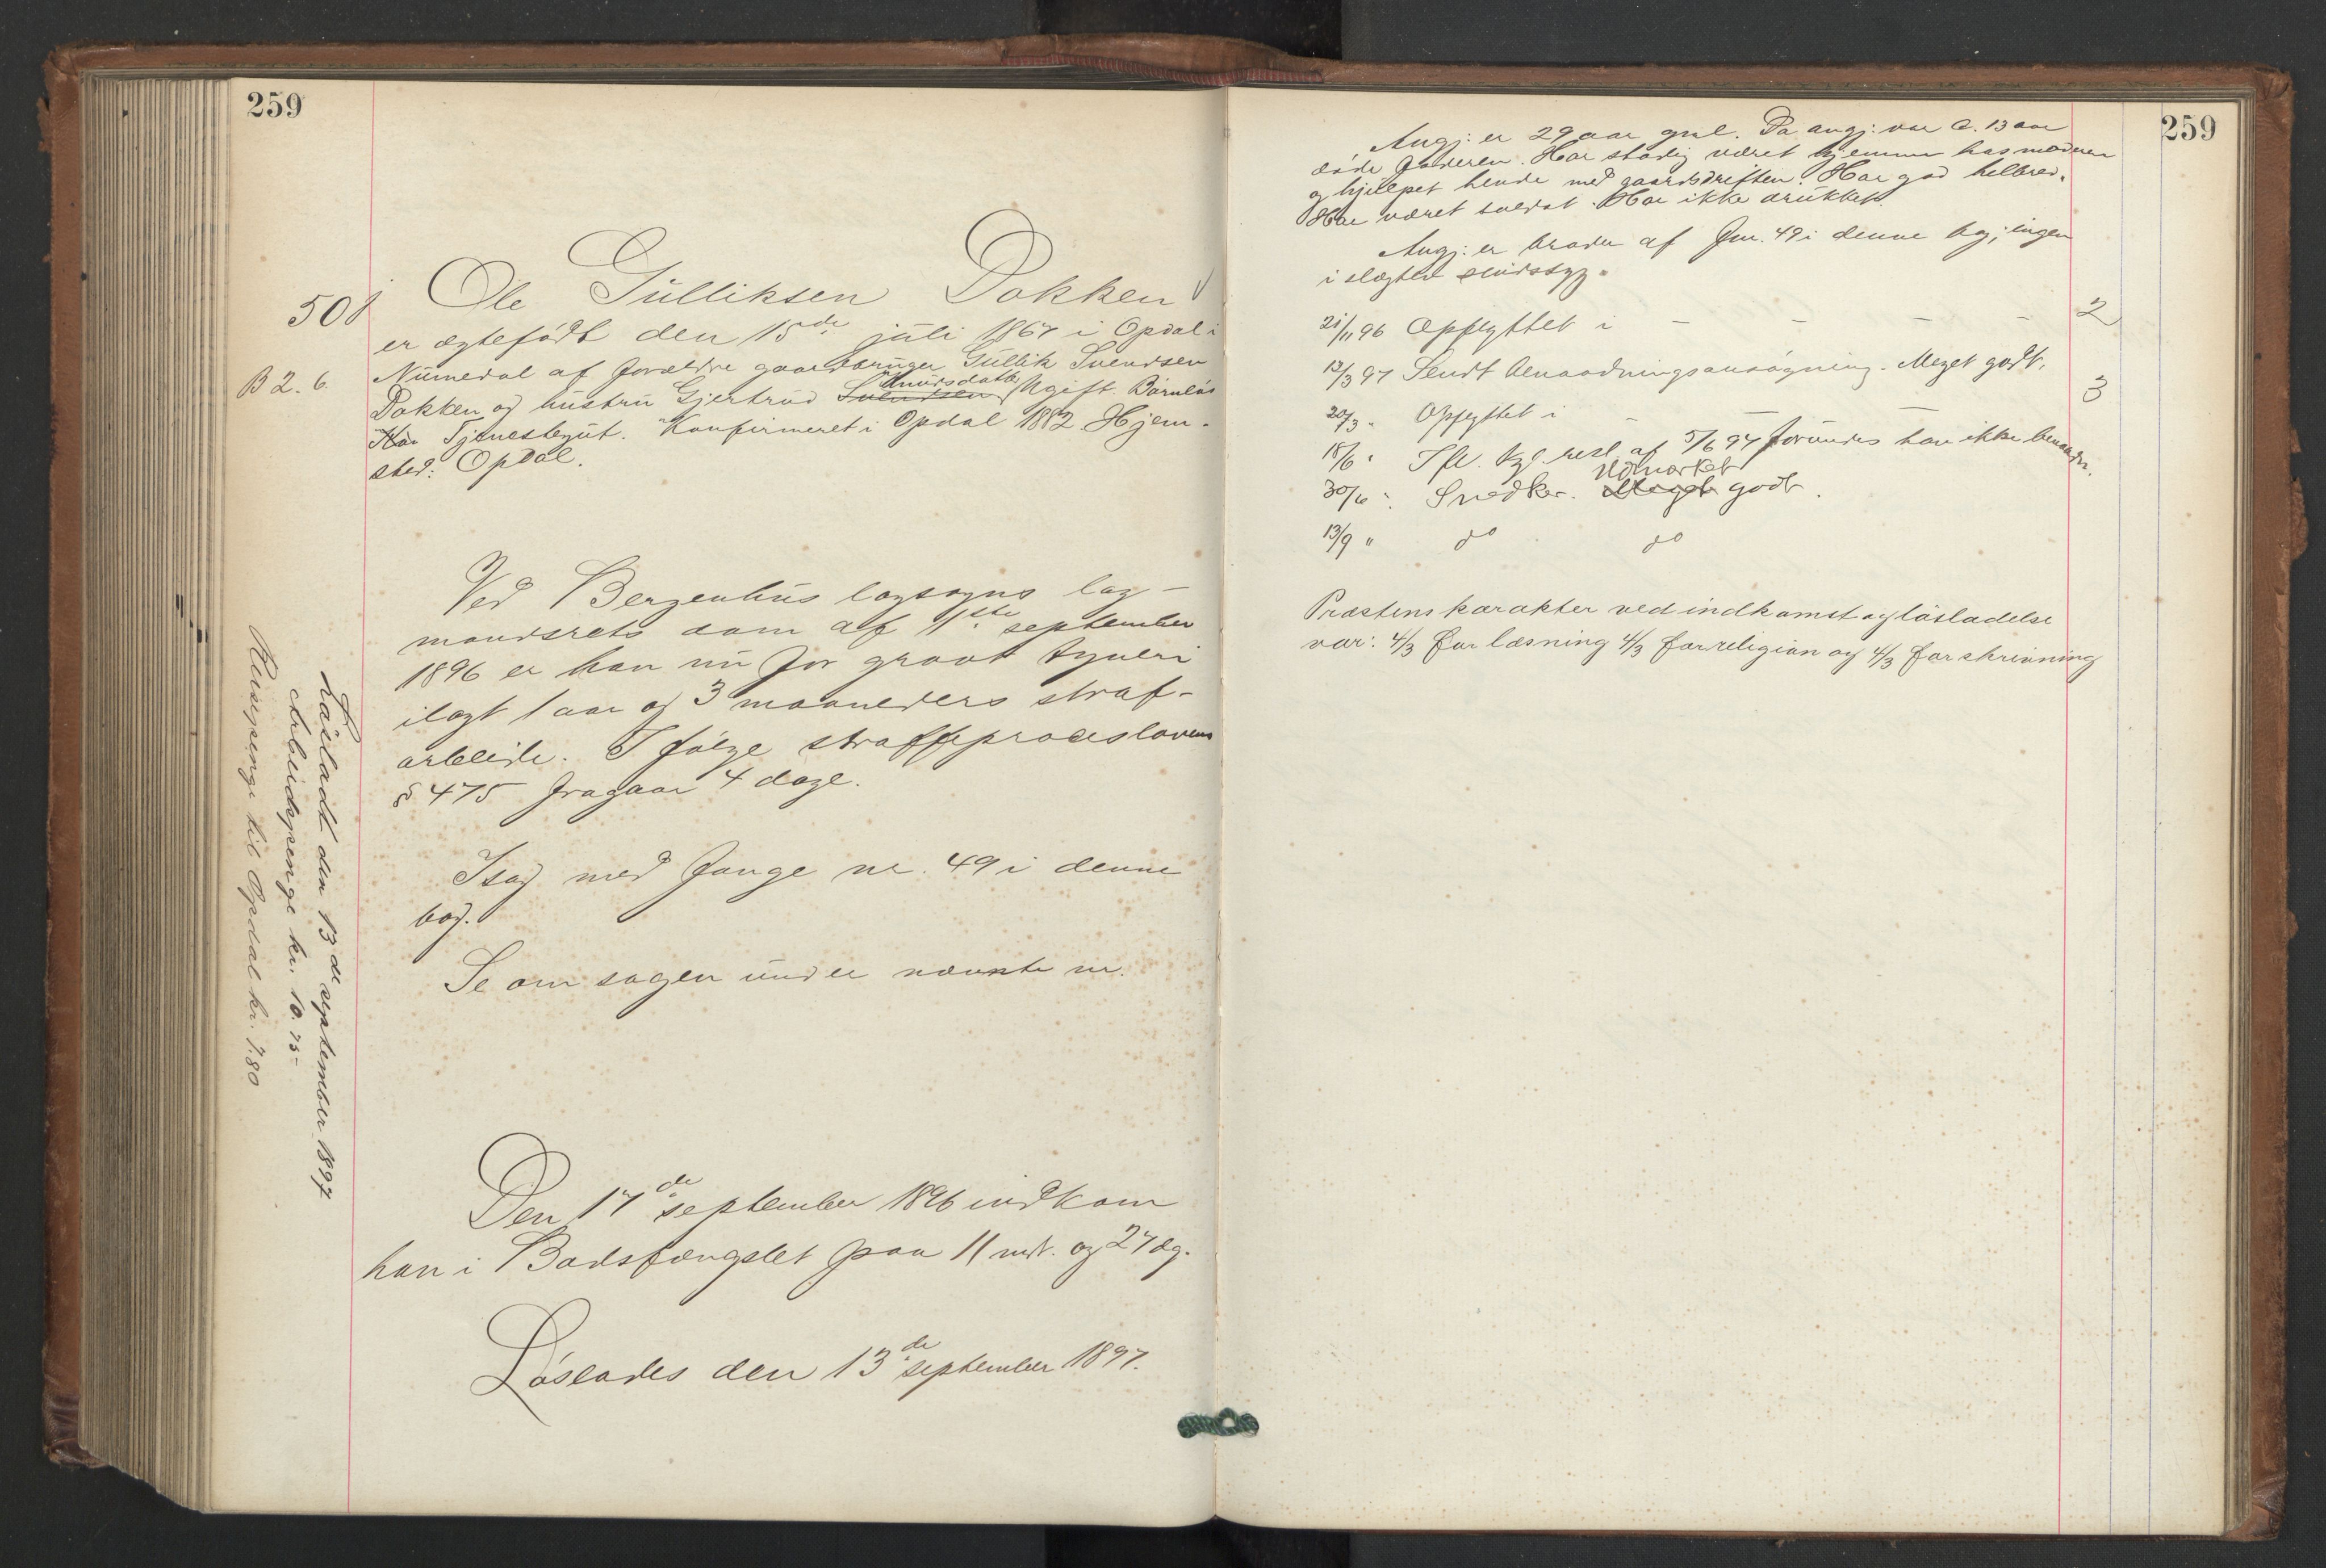 259
50
Ole Gulliksen Dokken
er ægtefødt den 15de juli 1867 i Opdal i
B 2. 6.
Numedal af forældre gaardbruger Gullik Svendsen
Dokken og hustru Gjertrud Svendsen Knudsdatter Ugift. Barnløs
Tjenestegut. Konfirmeret i Opdal 1882 Hjem-
sted: Opdal.
Ved Bergenhus lagsogns lag-
mandsrets dom af 1ste september
1896 er han nu for grovt tyveri
ilagt 1 aar og 3 maaneders straf-
arbeide. I følge straffeproceslovens
§ 475 fragaar 4 dage.
Isag med fange nr. 49 i denne
bog.
Se om sagen under nævnte nr.
Den 17de september 1896 indkom
han i Bodsfængslet paa 11 mdr. og 27 dg.
Løslades den 13de september 1897.
Løsladt den 13de september 1897
Arbeidspenge kr. 10.75-
Reisepenge til Opdal kr. 7.80
259
Angj: er 29 aar gml. Da angj: var c. 13 aar
døde faderen. Har stadig været hjemme hos moderen
og hjulpet hende med gaardsdriften. Har god helbred.
Har været soldat. Har ikke drukket.
Angj: er broder af fnr. 49 i denne bog; ingen
i slægten sindssyg.
21/11 96 Opflyttet i - - - - 2
12/3 97 Sendt benaadningsansøgning. Meget godt.
20/3 " Opflyttet i - - - 3
18/6 " Ifl. kgl. resl. af 5/6 97 forundes han ikke benaadn.
30/6 " Snedker. Meget Udmærket godt.
13/9 " do do
Præstens karakter ved indkomst og løsladelse
var: 4/3 for læsning 4/3 for religion og 4/3 for skrivning